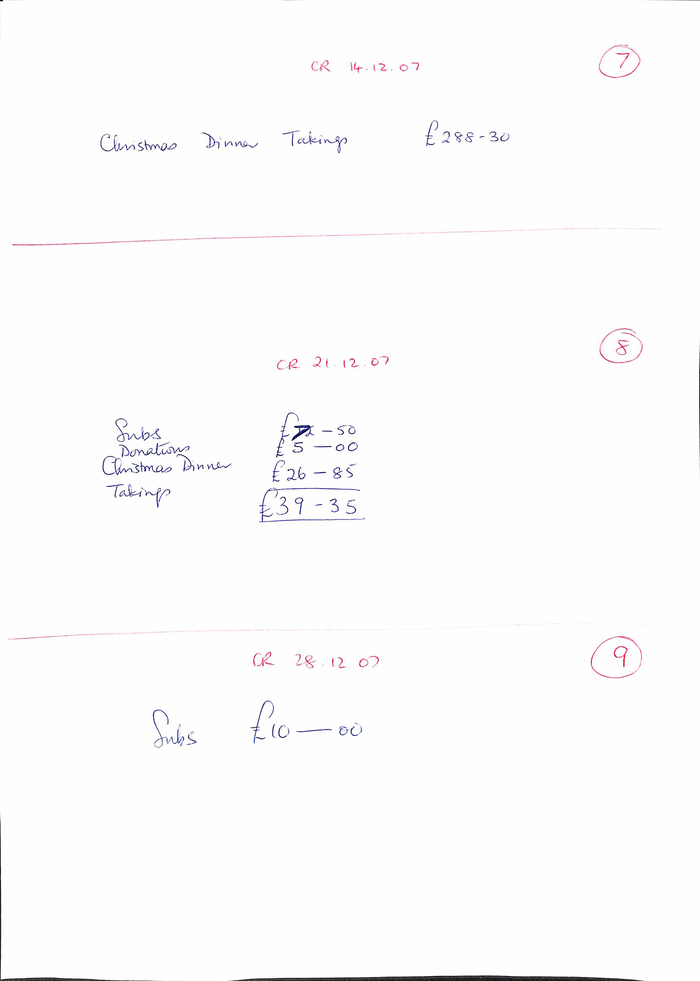 CR 14.12.07 7
Christmas Dinner Takings £288-30
CR 21.12.07 8
Subs £7-50
Donations £5-00
Christmas Dinner £26-85
Takings
£39-35
CR 28.12.07 9
Subs £10-00